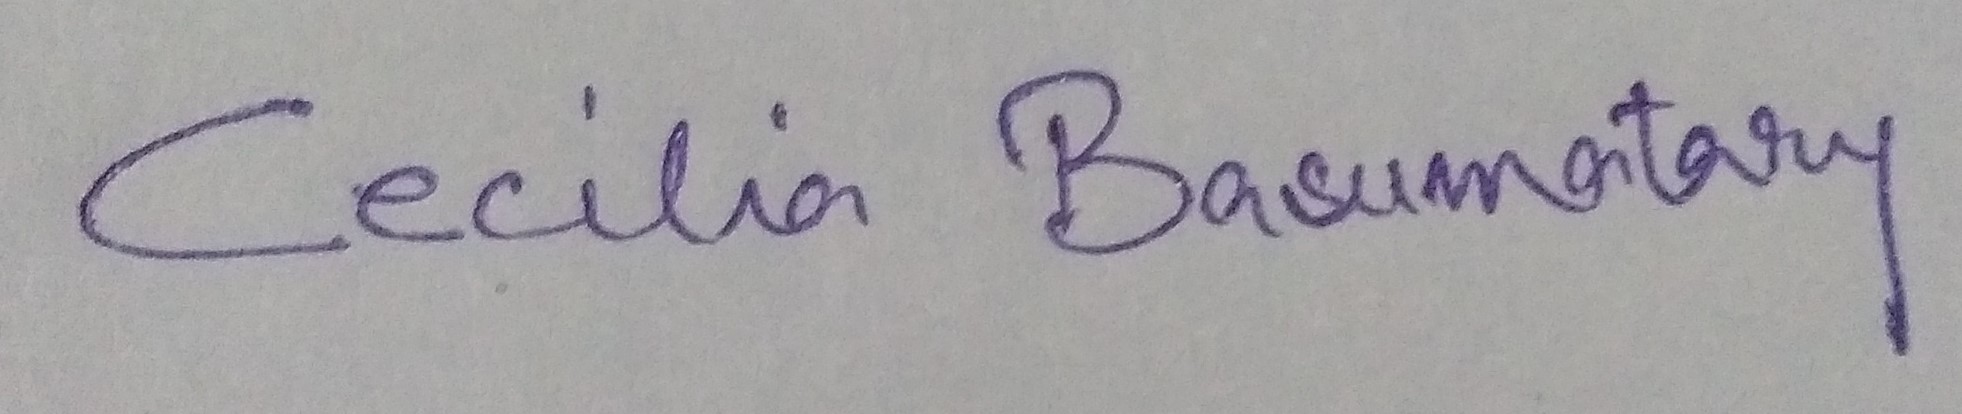 Cecilia Basumatary